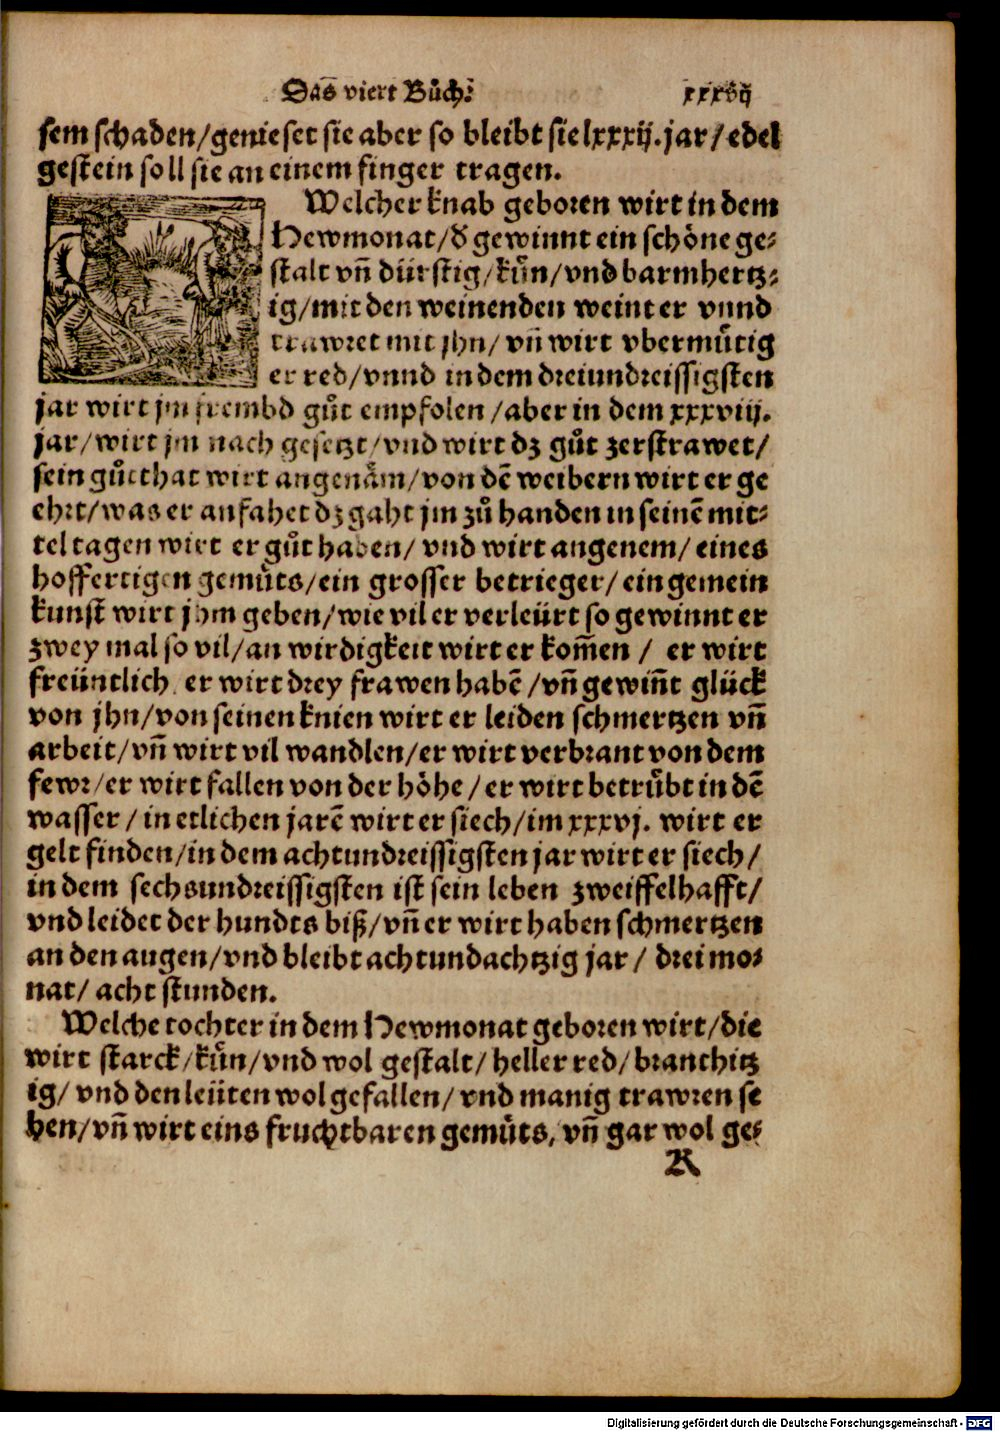 Das viert Bůch. xxxvij
sem schaden/genieset sie aber so bleibt sie lxxxij.jar/edel
gestein soll sie an einem finger tragen.
Welcher knab geboren wirt in dem
Hewmonat/d' gewinnt ein schöne ge-
stalt vñ dürstig/kůn/vnd barmhertz-
ig/mit den weinenden weint er vnnd
trawret mit jhn/vñ wirt vbermůtig
er red/vnnd in dem dreiundreissigsten
jar wirt jm frembd gůt empfolen/aber in dem xxxviij.
jar/wirt jm nach gesetzt/vnd wirt dz gůt zerstrawet/
sein gůtthat wirt angenåm/von dē weibern wirt er ge
ehrt/was er anfahet dz gaht jm zů handen in seinē mit-
tel tagen wirt er gůt haben/vnd wirt angenem/eines
hoffertigen gemůts/ein grosser betrieger/ein gemein
kunst wirt jhm geben/wie vil er verleürt so gewinnt er
zwey mal so vil/an wirdigkeit wirt er kom̃en/ er wirt
freüntlich er wirt drey frawen habē/vñ gewiñt glück
von jhn/von seinen knien wirt er leiden schmertzen vñ
arbeit/vñ wirt vil wandlen/er wirt verbrant von dem
fewr/er wirt fallen von der höhe/er wirt betrůbt in dē
wasser/in etlichen jarē wirt er siech/im xxxvj. wirt er
gelt finden/in dem achtundreissigsten jar wirt er siech/
in dem sechsundreissigsten ist sein leben zweiffelhafft/
vnd leidet der hundts biß/vñ er wirt haben schmertzen
an den augen/vnd bleibt achtundachtzig jar/ drei mo-
nat/acht stunden.
Welche tochter in dem Hewmonat geboren wirt/die
wirt starck/kůn/vnd wol gestalt/heller red/branthitz
ig/vnd den leüten wol gefallen/vnd manig trawren se
hen/vñ wirt eins fruchtbaren gemůts, vñ gar wol ge-
K
Digitalisierung gefördert durch die Deutsche Forschungsgemeinschaft - DFG